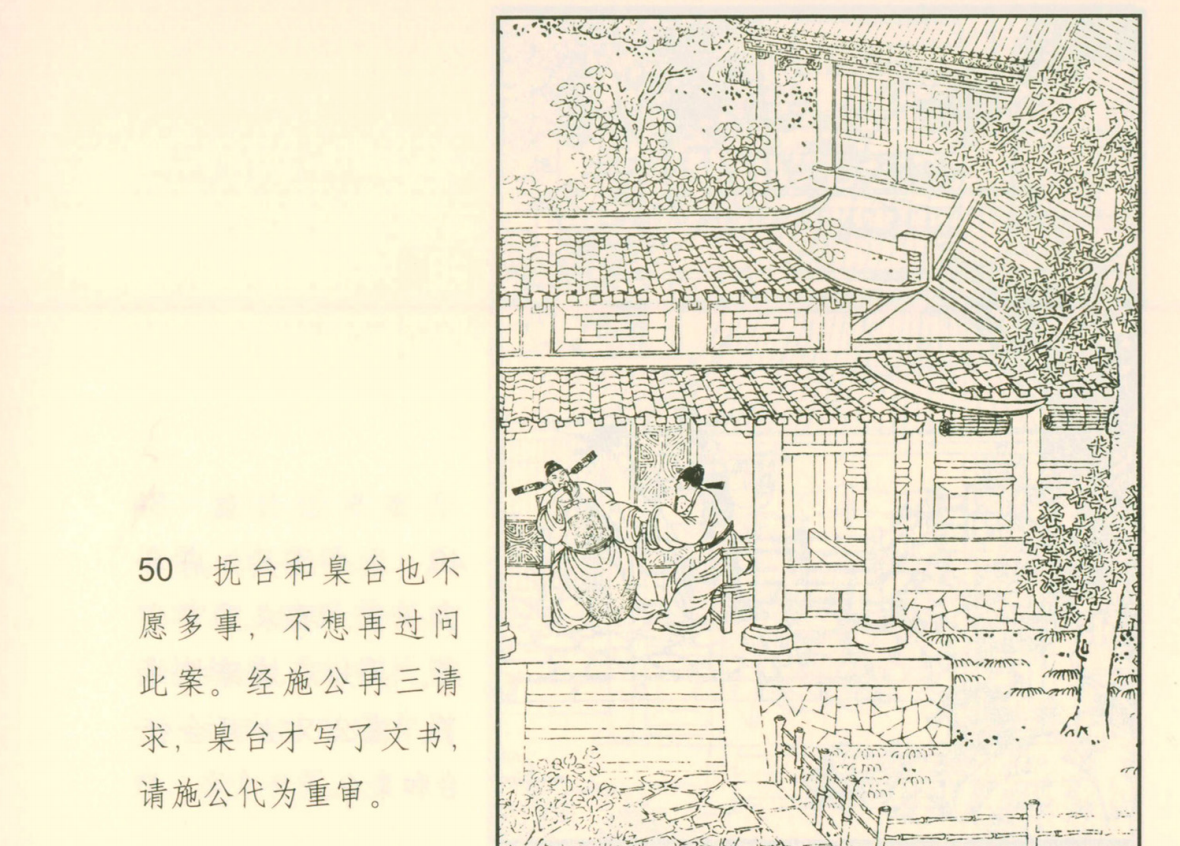 50 抚台和臬台也不
愿多事，不想再过问
此案。经施公再三请
求，臬台才写了文书，
请施公代为重审。